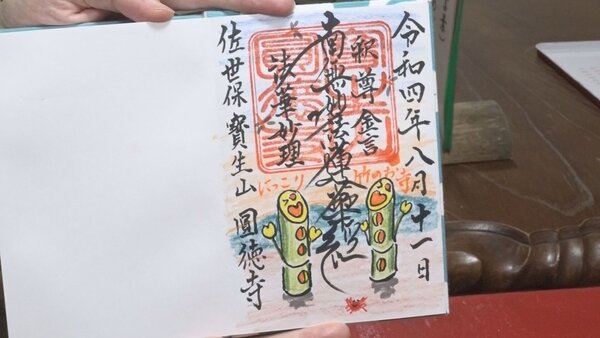 令和四年八月十一日
釈尊金言
竹のお寺
南無妙法蓮華経
法華妙理
にっこり
佐世保 寶生山 圓徳寺